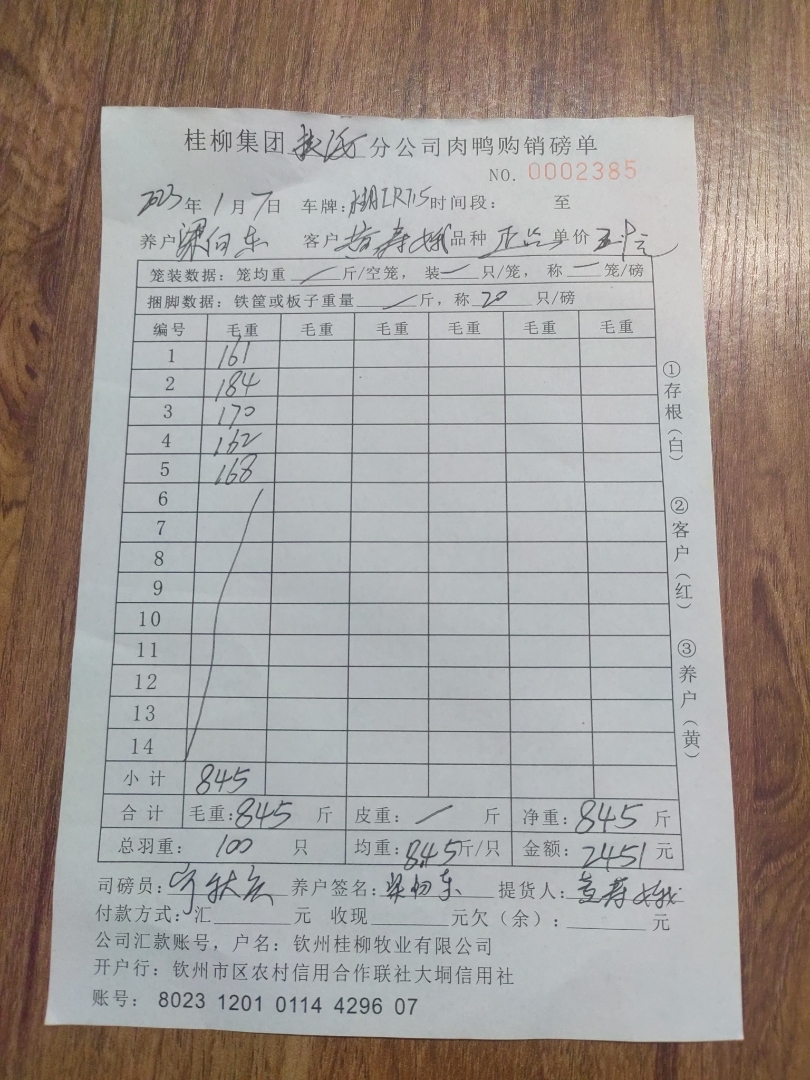 桂柳集团 分公司肉鸭购销磅单
NO. 0002385
2023年1月7日 车牌: 时间段: 至
养户 梁伯东 客户 黄寿娥 品种 单价
笼装数据:笼均重 / 斤/空笼,装 一 只/笼,称 一 笼/磅
捆脚数据:铁筐或板子重量 / 斤,称 20 只/磅
编号 毛重 毛重 毛重 毛重 毛重 毛重
1 161
2 184
3 170
4 162
5 168
6
7
8
9
10
11
12
13
14
小计 845
合计 毛重:845 斤 皮重: / 斤 净重:845 斤
总羽重: 100 只 均重:8.45斤/只 金额:2451元
司磅员: 养户签名:梁伯东 提货人:黄寿娥
付款方式:汇 元 收现 元欠(余): 元
公司汇款账号,户名:钦州桂柳牧业有限公司
开户行:钦州市区农村信用合作联社大垌信用社
账号: 8023 1201 0114 4296 07
①存根(白) ②客户(红) ③养户(黄)